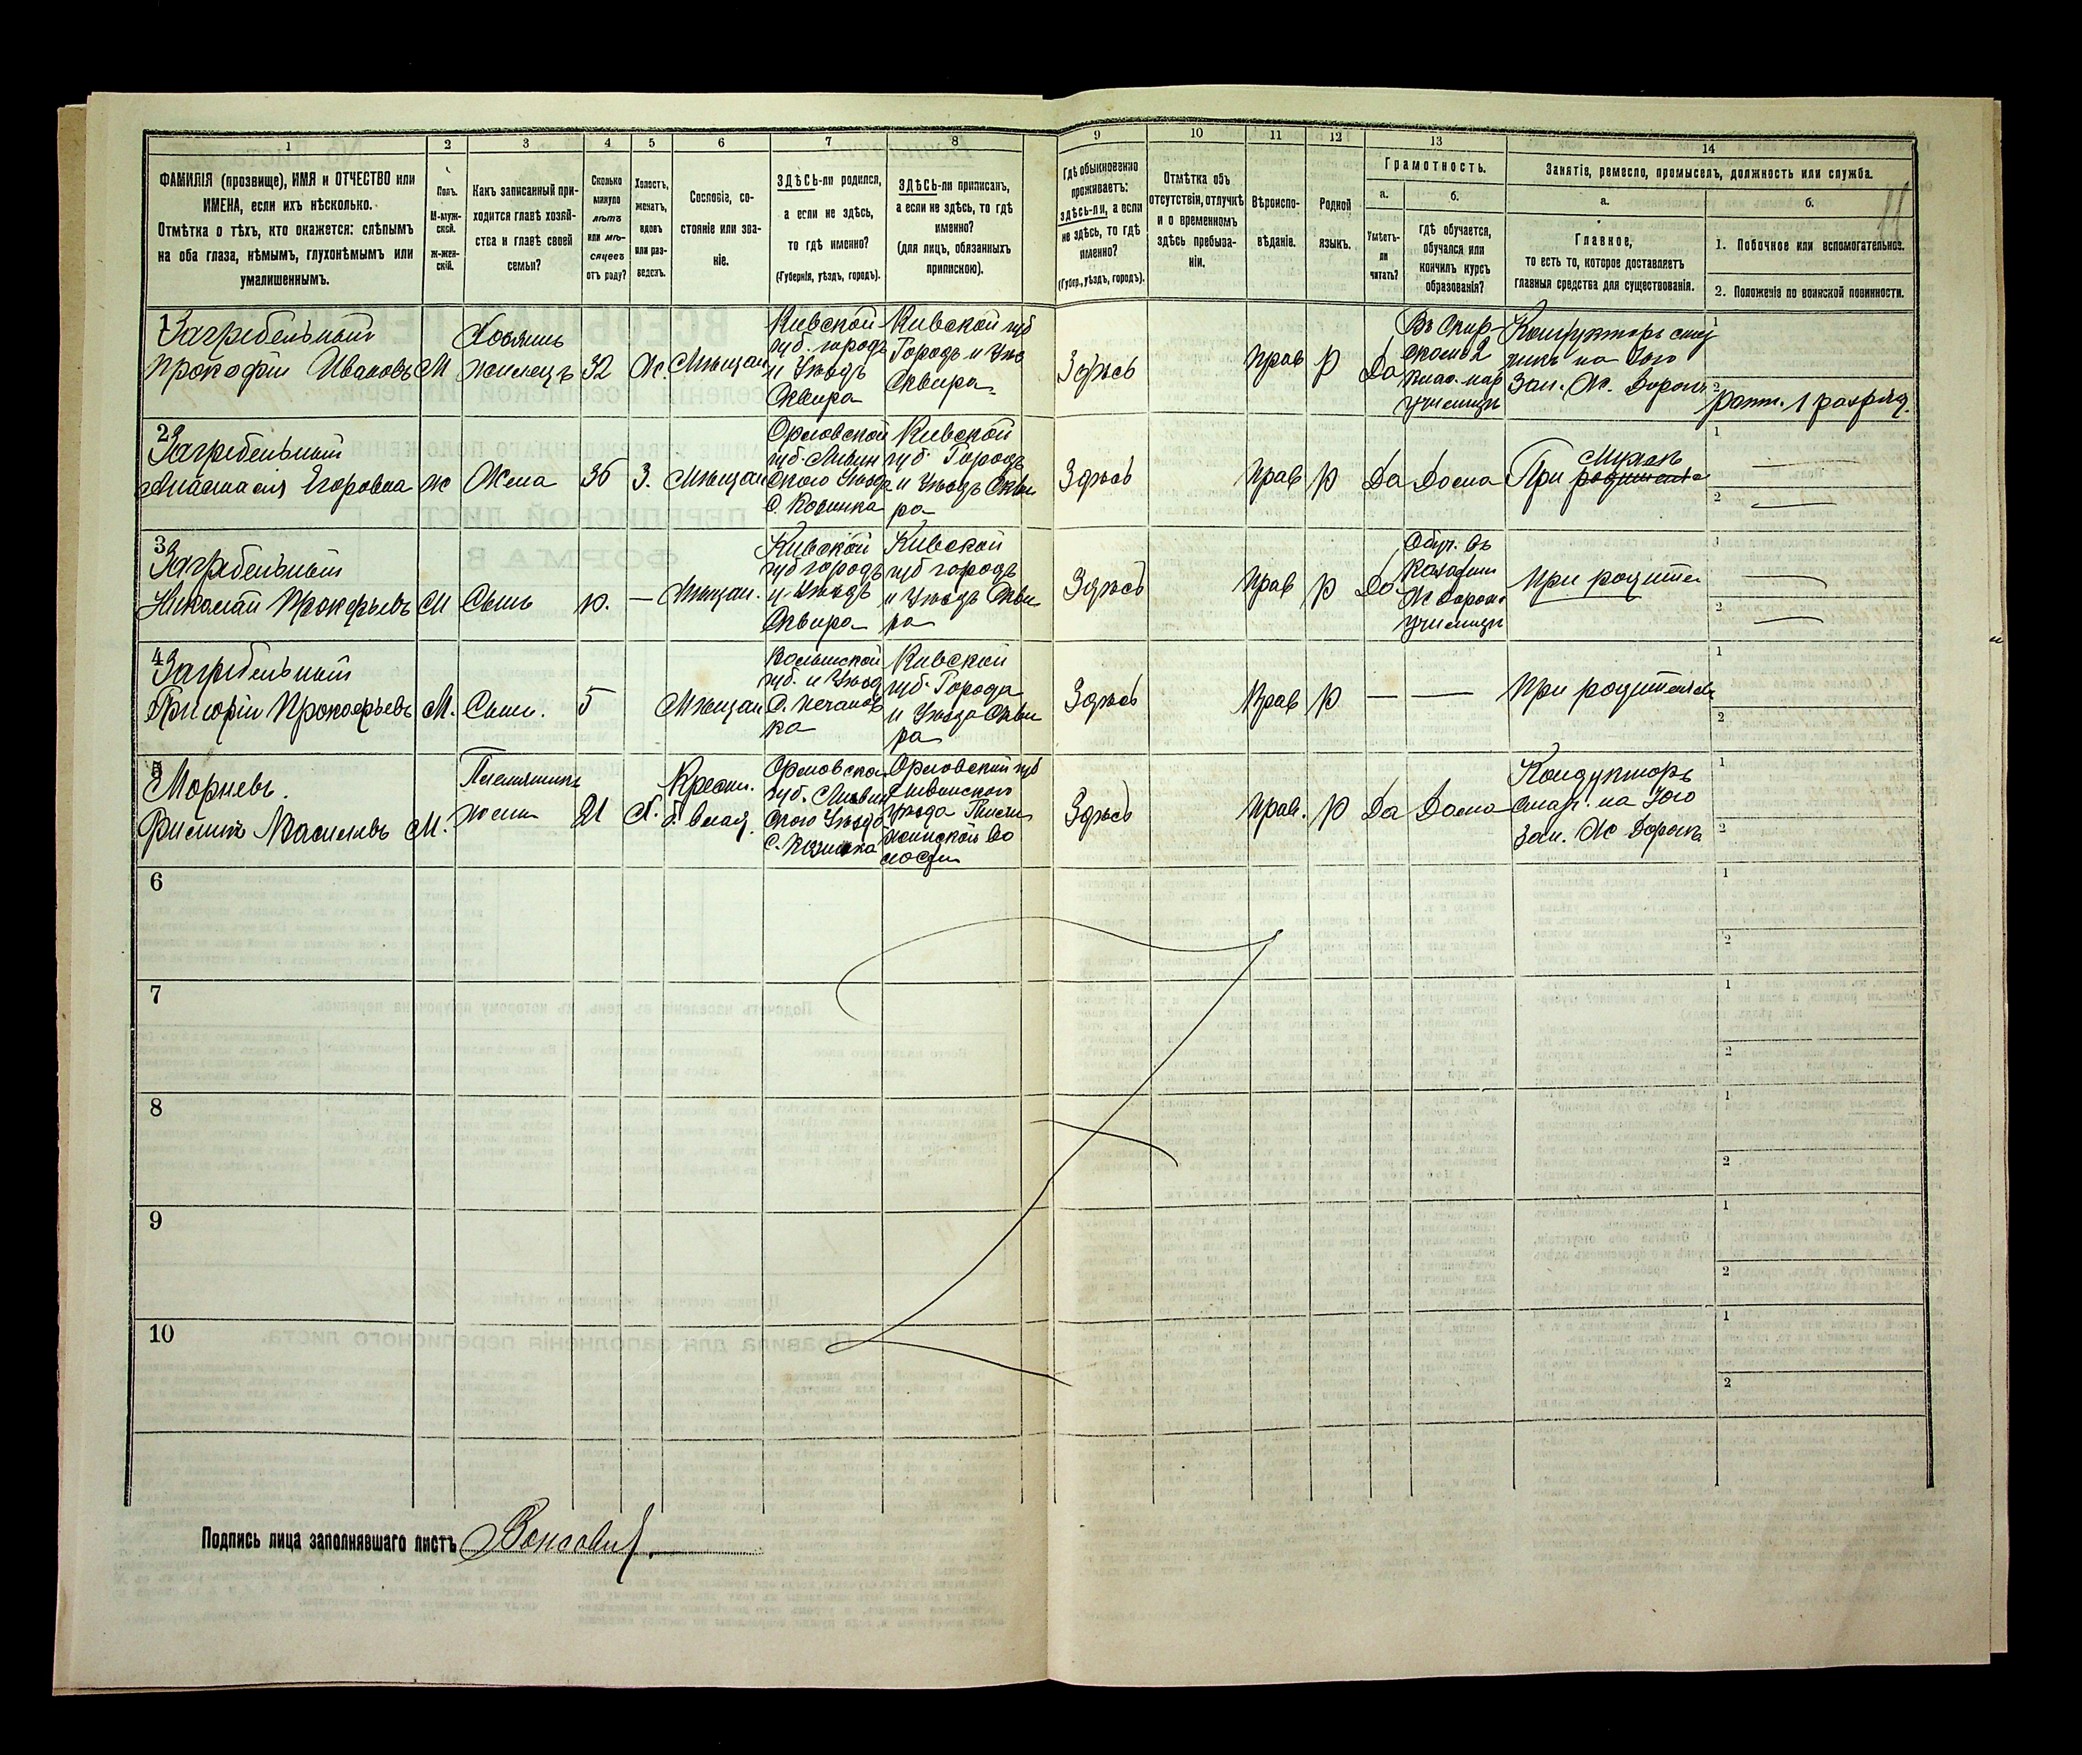 1
2
3
4
5
6
7
8
9
10
11
12
13
14
ФАМИЛІЯ (прозвище), ИМЯ и ОТЧЕСТВО или
ИМЕНА, если ихъ нѣсколько.
Отмѣтка о тѣхъ, кто окажется: слѣпымъ
на оба глаза, нѣмымъ, глухонѣмымъ или
умалишеннымъ.
Полъ.
М-муж-
ской.
Ж-жен-
скій.
Какъ записанный при-
ходится главѣ хозяй-
ства и главѣ своей
семьи?
Сколько
минуло
лѣтъ
или мѣ-
сяцевъ
отъ роду?
Холостъ,
женатъ,
вдовъ
или раз-
веденъ.
Сословіе, со-
стояніе или зва-
ніе.
ЗДѢСЬ-ли родился,
а если не здѣсь,
то гдѣ именно?
(Губернія, уѣздъ, городъ).
ЗДѢСЬ-ли приписанъ,
а если не здѣсь, то гдѣ
именно?
(для лицъ, обязанныхъ
припискою).
Гдѣ обыкновенно
проживаетъ:
здѣсь-ли, а если
не здѣсь, то гдѣ
именно?
(Губер., уѣздъ, городъ).
Отмѣтка объ
отсутствіи, отлучкѣ
и о временномъ
здѣсь пребыва-
ніи.
Вѣроиспо-
вѣданіе.
Родной
языкъ.
Грамотность.
а.
Умѣетъ-
ли
читать?
б.
Гдѣ обучается,
обучался или
кончилъ курсъ
образованія?
Занятіе, ремесло, промыселъ, должность или служба.
а.
Главное,
то есть то, которое доставляетъ
главныя средства для существованія.
б.
1. Побочное или вспомогательное.
2. Положеніе по воинской повинности.
11
1
Загребельный
Прокофій Ивановъ
М
Хозяинъ
жилецъ
32
Ж.
Мѣщан
Кивской
губ. городъ
и Уѣздъ
Сквира
Кивской губ
Городъ и Уѣз
Сквира
Здѣсь
Прав
Р
Да
училищѣ
Зап. Ж. Дорогѣ
1
2
Ратн. 1 разряд.
2
Загребельный
Анастасія Егоровна
ж
Жена
36
З.
Мѣщан
Орловской
губ. Ливен
скаго Уѣзда
С. Козинка
Кивской
губ. Городъ
и Уѣздъ Скви
ра
Здѣсь
Прав
Р
Да
Дома
При родителѣ
Мужѣ
1
2
3
Загребельный
Николай Прокофьевъ
М
Сынъ
10.
—
Мѣщан.
Кивской
губ городъ
и Уѣздъ
Сквира
Кивской
губ городъ
и Уѣздъ Скви
ра
Здѣсь
Прав
Р
Да
Обуч. въ
Казатин
Ж Дорож.
училищѣ
При родите
1
2
4
Загребельный
Григорій Прокофьевъ
М.
Сынъ.
5
Мѣщан
Волынской
губ. и Уѣзд
С. Печанов
ка
Кивской
губ. Города
и Уѣзда Скви
ра
Здѣсь
Прав
Р
— —
При родителяхъ
1
2
5
Морневъ.
Филипъ Васильевъ
М.
Племянникъ
жены
21
Х.
Крестн.
б. влад.
Орловской
губ. Ливен
скаго Уѣзда
С. Козинка
Орловской губ
Ливенскаго
Уѣзда
Здѣсь
Прав.
Р
Да
Дома
Кондукторъ
смаз. на Юго
Зап. Ж Дорогѣ
1
2
6
1
2
7
1
2
8
1
2
9
1
2
10
1
2
Подпись лица заполнявшаго листъ